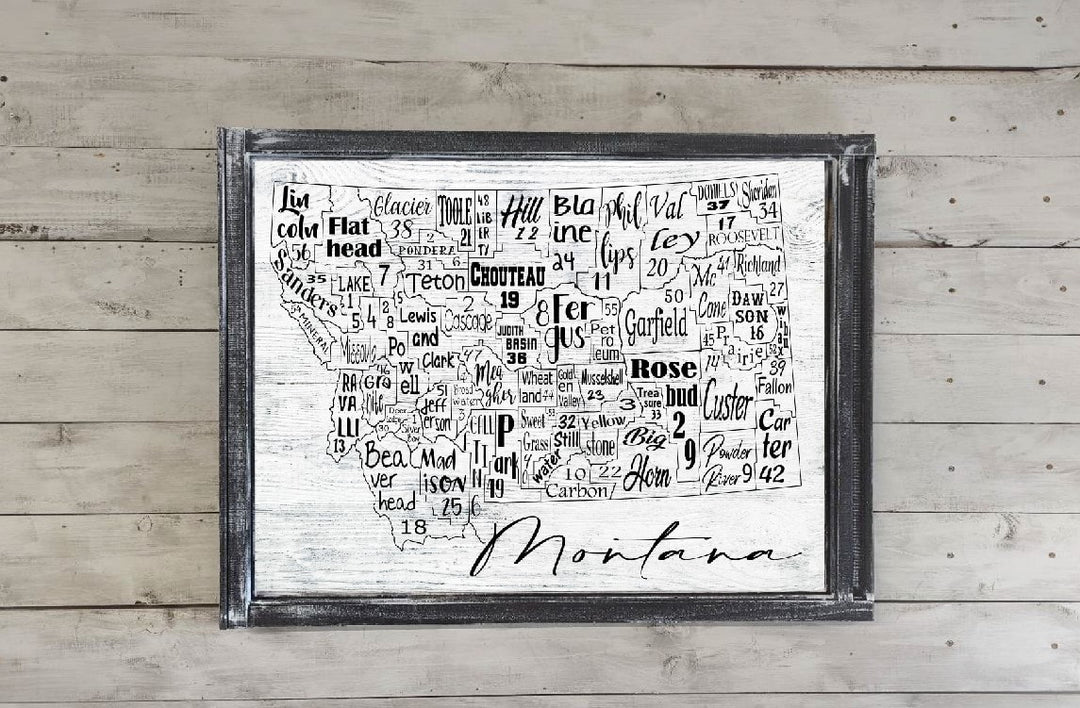 Lin
coln
56
Flat
head
7
Glacier
38
TOOLE
21
48
LIB
ER
TY
Hill
12
Bla
ine
24
phil
lips
11
Val
ley
20
DANIELS
37
Sheridan
34
17
ROOSEVELT
2
PONDERA
6
Sanders
35
LAKE
31
Teton
CHOUTEAU
19
Mc
41
Cone
Richland
27
50
Garfield
DAW
SON
16
MINERAL
Missoula
1
5
4
2
8
5
Lewis
and
Clark
2
Cascade
JUDITH
BASIN
36
8
Fer
gus
55
Pet
ro
leum
45
Pr
airie
Wi
ba
ux
52
39
Fallon
Po
w
ell
47
Mea
gher
Wheat
land
44
Gold
en
Valley
Musselshell
23
Rose
bud
29
Trea
sure
33
Custer
14
Car
ter
42
RA
VA
LLI
13
46
Gra
nite
Deer
lodge
30
Silver
Bow
51
Jeff
erson
Broad
water
GALL
TI
N
6
P
ark
49
Sweet
Grass
Still
water
32
Yellow
stone
3
Big
Horn
22
Powder
River 9
10
Carbon
Bea
ver
head
18
Mad
ison
25
Montana